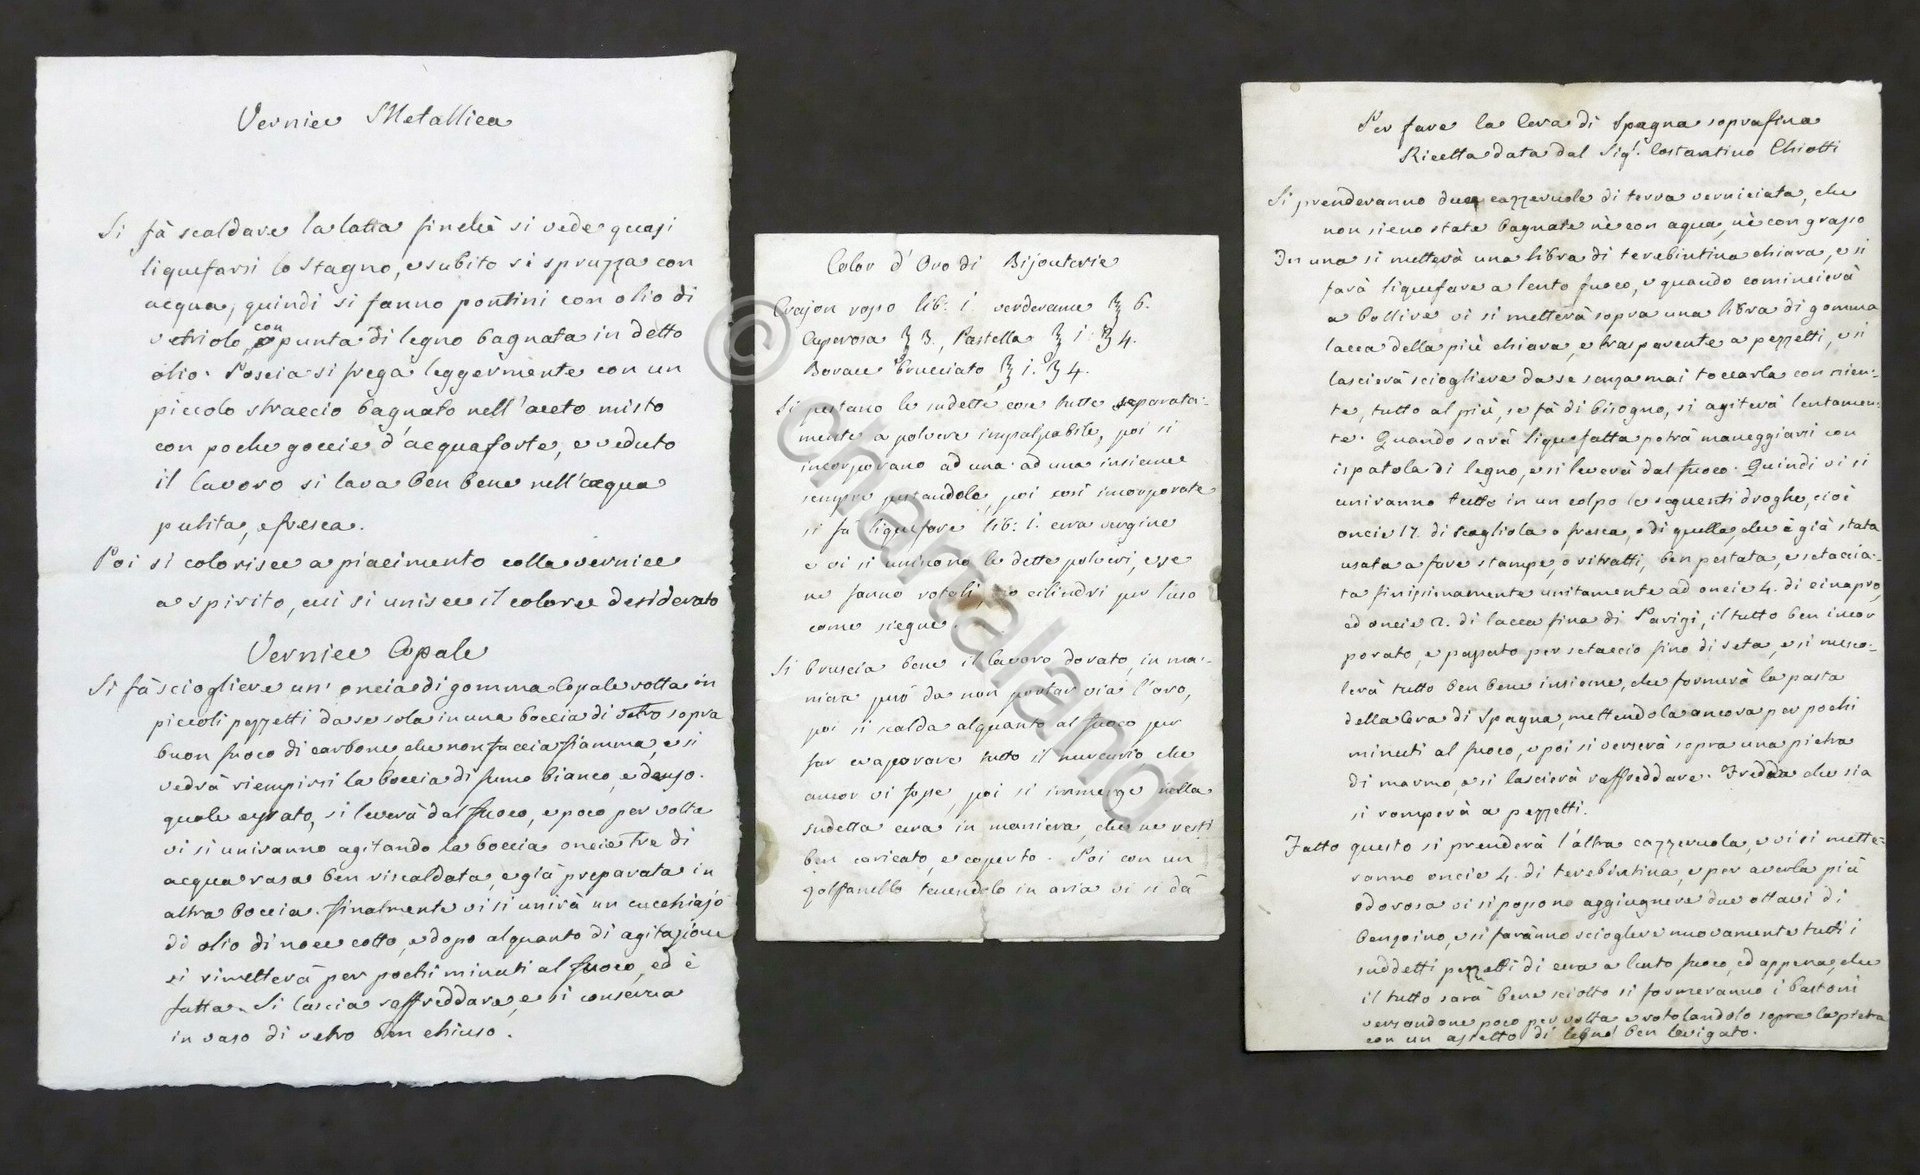 Vernice Metallica
Si fà scaldare la latta finchè si vede quasi
liquefarsi lo stagno, e subito si spruzza con
acqua, quindi si fanno pontini con olio di
vetriolo, con punta di legno bagnata in detto
olio. Poscia si frega leggermente con un
piccolo straccio bagnato nell'aceto misto
con poche goccie d'acquaforte, e veduto
il lavoro si lava ben bene nell'acqua
pulita, e fresca.
Poi si colorisce a piacimento colla vernice
a spirito, cui si unisce il colore desiderato
Vernice Copale
Si fà sciogliere un' oncia di gomma Copale rotta in
piccoli pezzetti da se sola in una boccia di vetro sopra
buon fuoco di carbone, che non faccia fiamma, e si
vedrà riempirsi la boccia di fumo bianco, e denso.
quale escato, si leverà dal fuoco, e poco per volta
vi si uniranno agitando la boccia oncie tre di
acqua rasa ben riscaldata, e già preparata in
altra boccia. finalmente vi si unirà un cucchiajo
di olio di noce cotto, e dopo alquanto di agitazione
si rimetterà per pochi minuti al fuoco, ed è
fatta. Si lascia raffreddare, e si conserva
in vaso di vetro ben chiuso.
Color d'Oro di Bijouterie
Crajon rosso lib: 1. verderame ℥ 6.
Caperosa ℥ 3., Pastella ℥ 1. ℥ 4.
Borace brucciato ℥ 1. ℥ 4.
Si pestano le sudette cose tutte separata-
mente a polvere impalpabile, poi si
incorporano ad una ad una insieme
sempre pestandole, poi così incorporate
si fà liquefare lib: 1. cera vergine
e vi si uniscono le dette polveri, e se
ne fanno rotoli, o cilindri per l'uso
come siegue.
Si bruscia bene il lavoro dorato, in ma-
niera però da non portar via l'oro,
poi si scalda alquanto al fuoco per
far evaporare tutto il mercurio che
ancor vi fosse, poi si immerge nella
sudetta cera in maniera, che ne resti
ben caricato, e coperto. Poi con un
zolfanello tenendolo in aria vi si dà
Per fare la Cera di Spagna soprafina
Ricetta data dal Sigr. Costantino Chiotti
Si prenderanno due cazzeruole di terra verniciata, che
non sieno state bagnate nè con aqua, nè con grasso
In una si metterà una libra di terebintina chiara, e si
farà liquefare a lento fuoco, e quando comincierà
a bollire vi si metterà sopra una libra di gomma
lacca della più chiara, e trasparente a pezzetti, e si
lascierà sciogliere da se senza mai toccarla con nien-
te, tutto al più, se fà di bisogno, si agiterà lentamen-
te. Quando sarà liquefatta potrà maneggiarsi con
ispatola di legno, e si leverà dal fuoco. Quindi vi si
uniranno tutto in un colpo le seguenti droghe, cioè
oncie 17. di scagliola o fresca, o di quella, che è già stata
usata a fare stampe, o ritratti, ben pestata, e setaccia-
ta finissimamente unitamente ad oncie 4. di cinapro,
ed oncie 2. di lacca fina di Parigi, il tutto ben incor
porato, e passato per setaccio fino di seta, e si mesco-
lerà tutto ben bene insieme, che formerà la pasta
della Cera di Spagna, mettendola ancora per pochi
minuti al fuoco, e poi si verserà sopra una pietra
di marmo e si lascierà raffreddare. Fredda che sia
si romperà a pezzetti.
Fatto questo si prenderà l'altra cazzeruola, e vi si mette-
ranno oncie 4. di terebintina, e per averla più
odorosa vi si possono aggiugnere due ottavi di
benzoino, e si faranno sciogliere nuovamente tutti i
suddetti pezzetti di cera a lento fuoco, ed appena, che
il tutto sarà bene sciolto si formeranno i bastoni
versandone poco per volta e rotolandolo sopra la pietra
con un assetto di legno ben levigato.
© charmaland